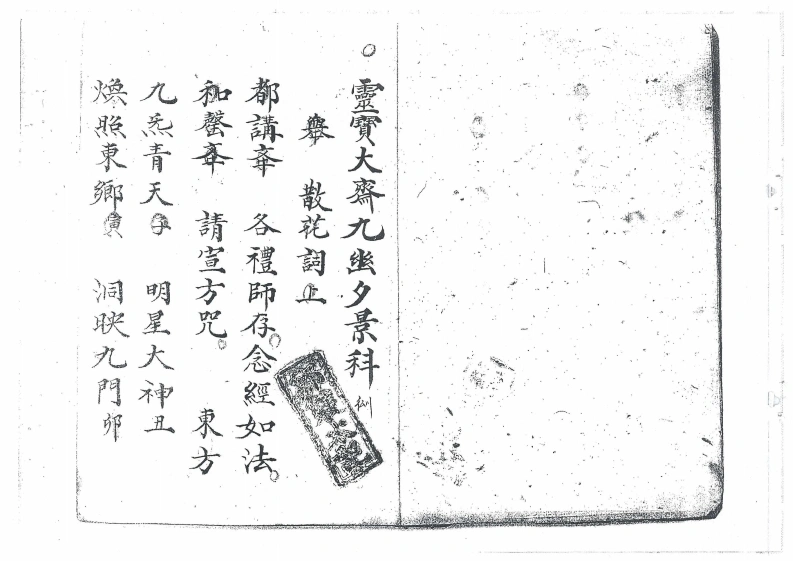 ○靈寶大齋九幽夕景科
舉 散花詞止
都講舉 各禮師存念經如法
知罄舉 請宣方咒 東方
九炁青天子 明星大神丑
煥照東鄉寅 洞映九門卯